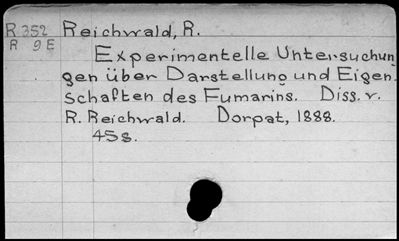 R 352 Reichwald, R.
R 9E Experimentelle Untersuchun
gen über Darstellung und Eigen
schaften des Fumarins. Diss. v.
R. Reichwald. Dorpat, 1888.
45s.